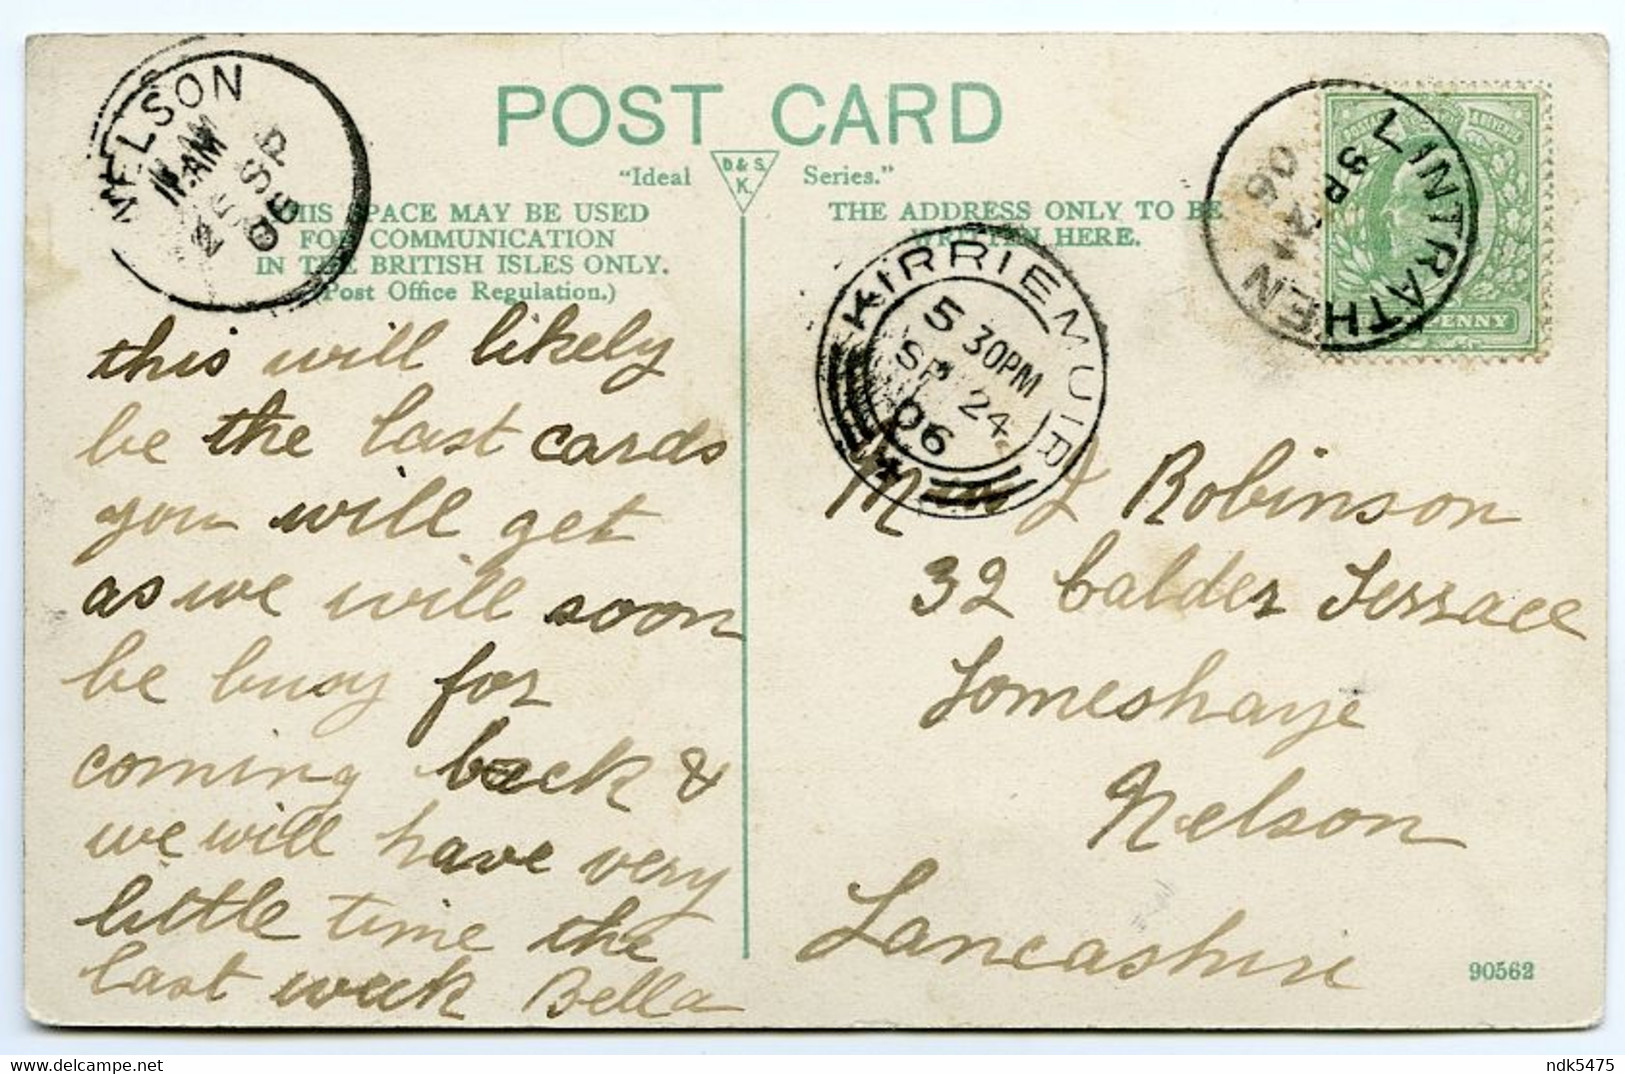 POST CARD
"Ideal D. & S. K. Series."
THIS SPACE MAY BE USED
FOR COMMUNICATION
IN THE BRITISH ISLES ONLY.
(Post Office Regulation.)
THE ADDRESS ONLY TO BE
WRITTEN HERE.
NELSON
11 AM
25 SP
06
KIRRIEMUIR
5 30PM
SP 24
06
LINTRATHEN
SP 24
06
PENNY
this will likely
be the last cards
you will get
as we will soon
be busy for
coming back &
we will have very
little time the
last week Bella
Robinson
32 Calder Terrace
Lomeshaye
Nelson
Lancashire
90562
ndk5475